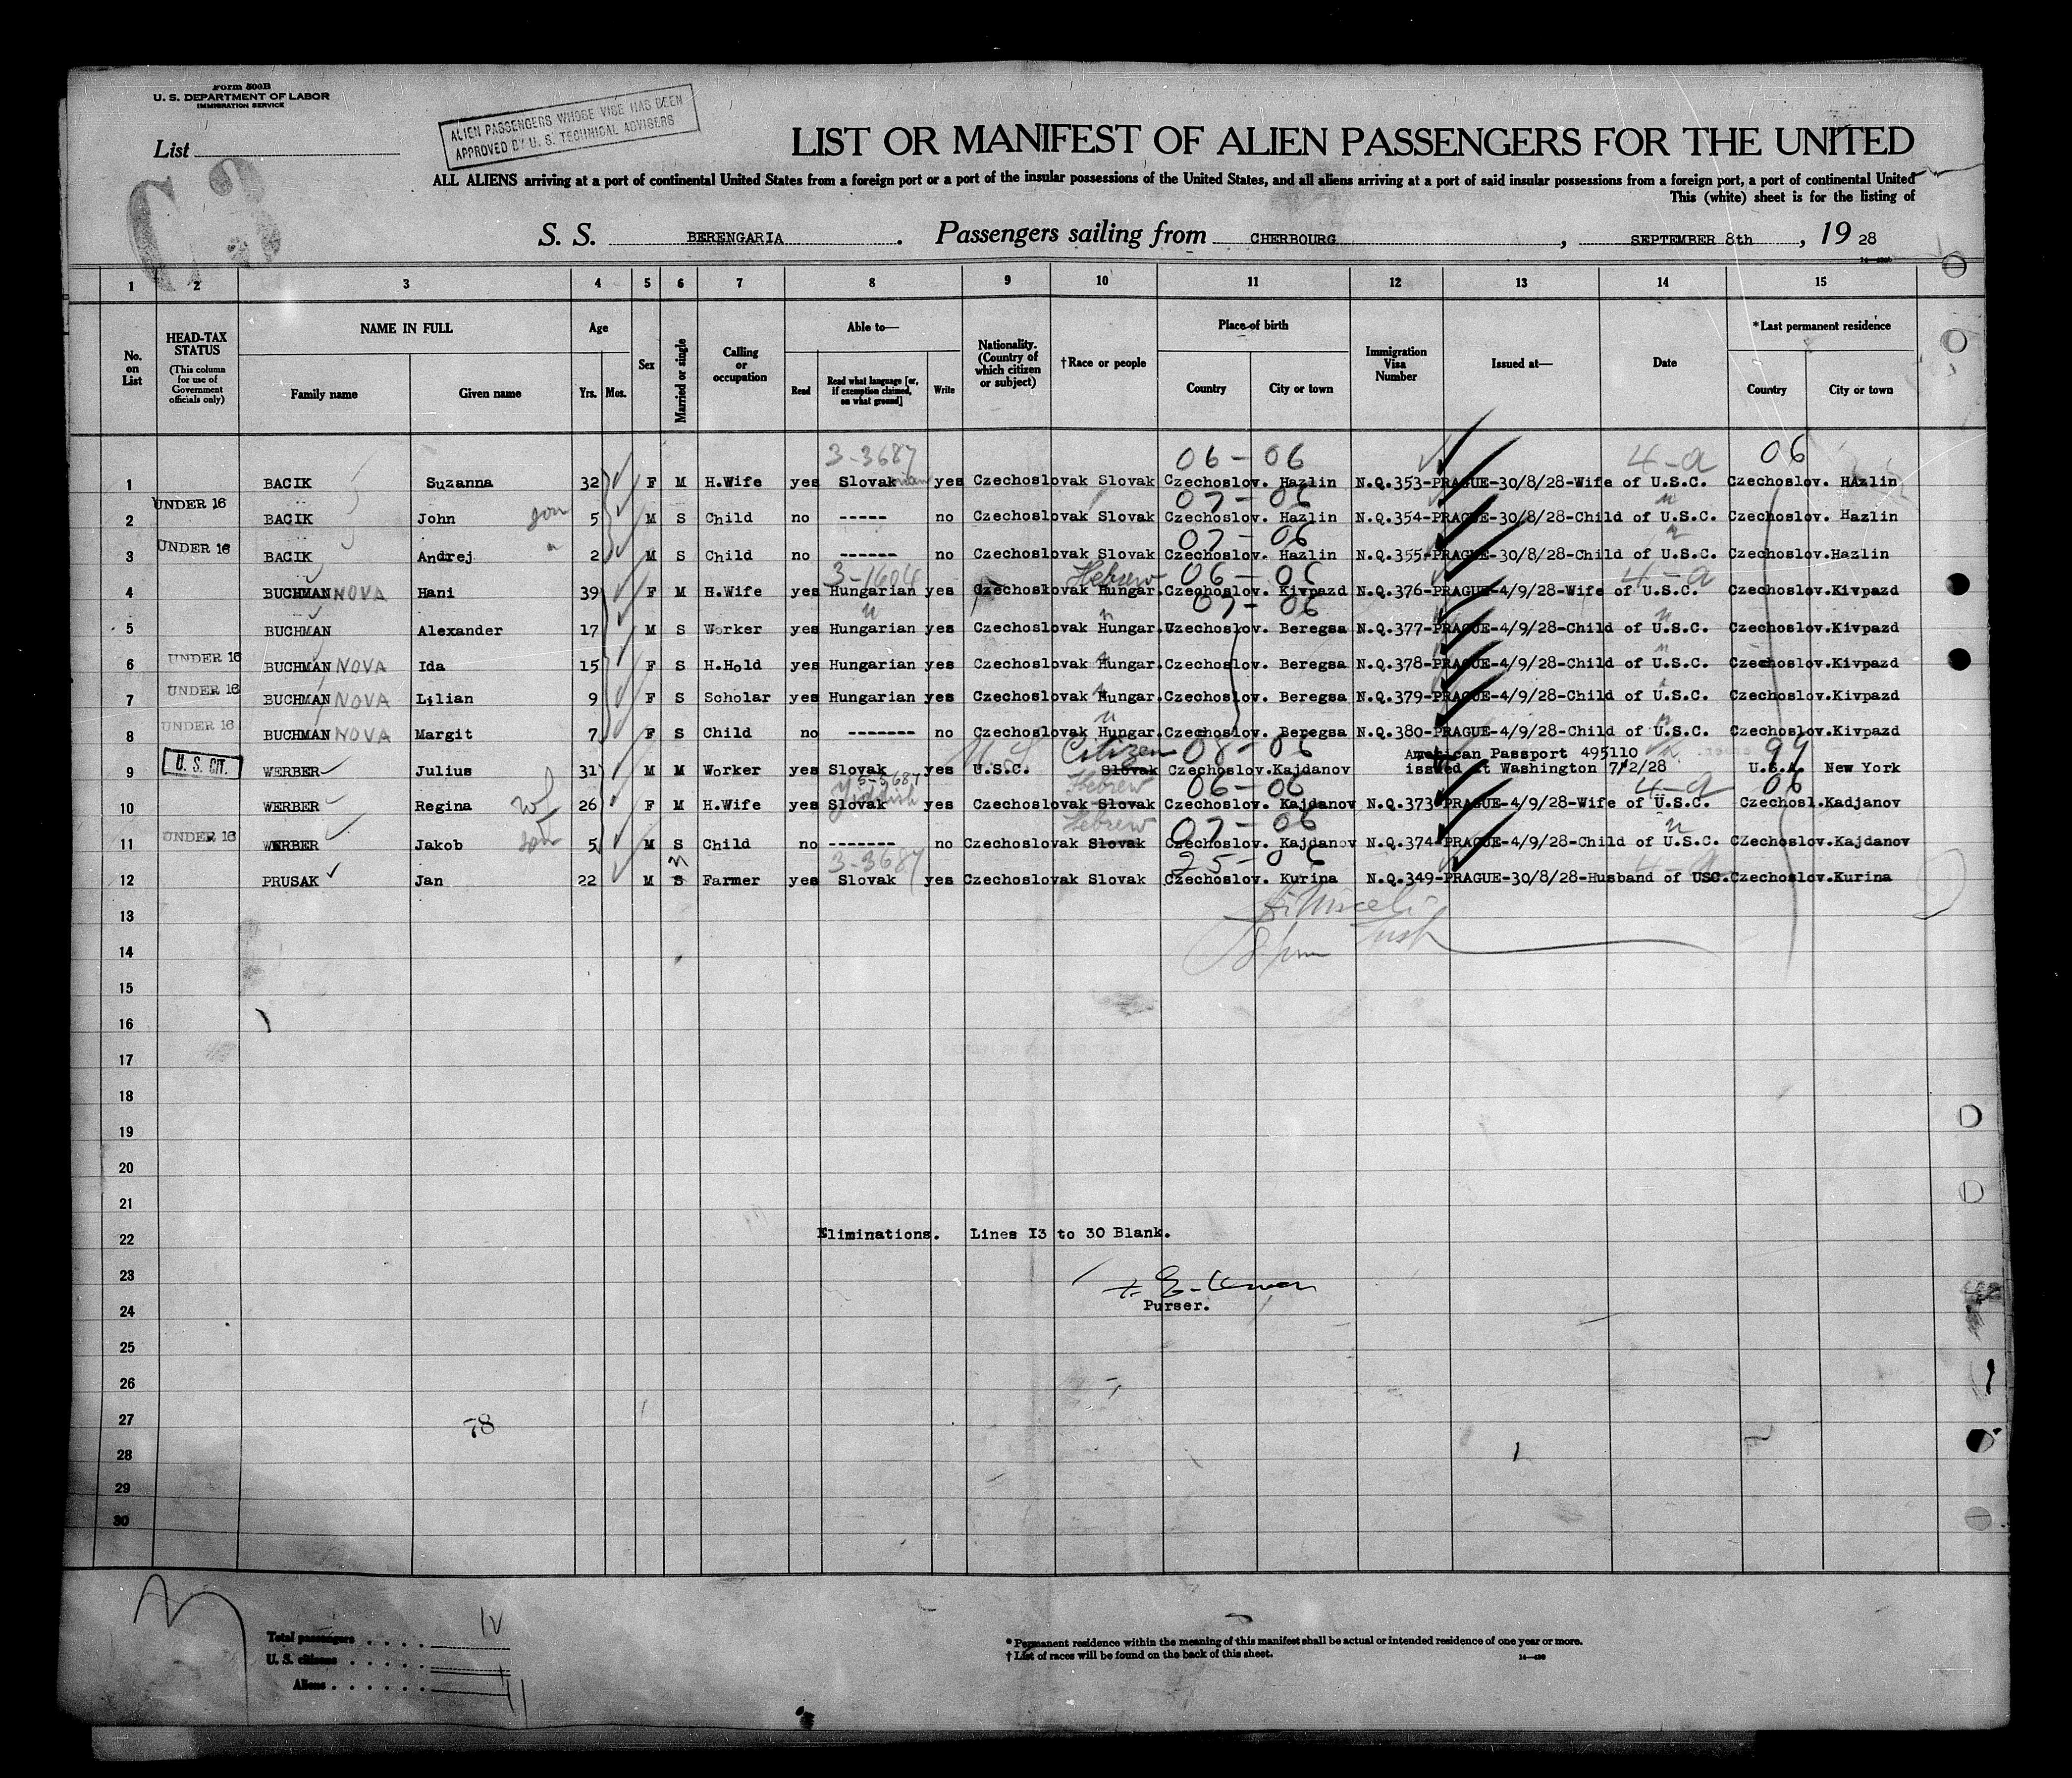 Form 500B
U. S. DEPARTMENT OF LABOR
IMMIGRATION SERVICE
List
C3
ALIEN PASSENGERS WHOSE VISE HAS BEEN
APPROVED BY U. S. TECHNICAL ADVISERS
LIST OR MANIFEST OF ALIEN PASSENGERS FOR THE UNITED
ALL ALIENS arriving at a port of continental United States from a foreign port or a port of the insular possessions of the United States, and all aliens arriving at a port of said insular possessions from a foreign port, a port of continental United
This (white) sheet is for the listing of
S. S. BERENGARIA . Passengers sailing from CHERBOURG , SEPTEMBER 8th , 19 28
1 2 3 4 5 6 7 8 9 10 11 12 13 14 15
No. on List
HEAD-TAX STATUS (This column for use of Government officials only)
NAME IN FULL Family name Given name
Age Yrs. Mos.
Sex
Married or single
Calling or occupation
Able to— Read Read what language [or, if exemption claimed, on what ground] Write
Nationality. (Country of which citizen or subject)
†Race or people
Place of birth Country City or town
Immigration Visa Number
Issued at—
Date
*Last permanent residence Country City or town
3-3687 06-06 4-a 06
1 BACIK Suzanna 32 F M H.Wife yes Slovak yes Czechoslovak Slovak Czechoslov. Hazlin N.Q.353-PRAGUE-30/8/28-Wife of U.S.C. Czechoslov. HAzlin
UNDER 16 07-06 "
2 BACIK John son 5 M S Child no ----- no Czechoslovak Slovak Czechoslov. Hazlin N.Q.354-PRAGUE-30/8/28-Child of U.S.C. Czechoslov. Hazlin
UNDER 16 " 07-06 "
3 BACIK Andrej 2 M S Child no ------ no Czechoslovak Slovak Czechoslov. Hazlin N.Q.355-PRAGUE-30/8/28-Child of U.S.C. Czechoslov.Hazlin
3-1604 Hebrew 06-06 4-a
4 BUCHMAN NOVA Hani 39 F M H.Wife yes Hungarian yes Czechoslovak Hungar.Czechoslov. Kivpazd N.Q.376-PRAGUE-4/9/28-Wife of U.S.C. Czechoslov.Kivpazd
" " 07-06 "
5 BUCHMAN Alexander 17 M S Worker yes Hungarian yes Czechoslovak Hungar.Czechoslov. Beregsa N.Q.377-PRAGUE-4/9/28-Child of U.S.C. Czechoslov.Kivpazd
UNDER 16 " "
6 BUCHMAN NOVA Ida 15 F S H.Hold yes Hungarian yes Czechoslovak Hungar.Czechoslov. Beregsa N.Q.378-PRAGUE-4/9/28-Child of U.S.C. Czechoslov.Kivpazd
UNDER 16 " "
7 BUCHMAN NOVA Lilian 9 F S Scholar yes Hungarian yes Czechoslovak Hungar.Czechoslov. Beregsa N.Q.379-PRAGUE-4/9/28-Child of U.S.C. Czechoslov.Kivpazd
UNDER 16 " "
8 BUCHMAN NOVA Margit 7 F S Child no ------- no Czechoslovak Hungar.Czechoslov. Beregsa N.Q.380-PRAGUE-4/9/28-Child of U.S.C. Czechoslov.Kivpazd
U. S. CIT. U.S. Citizen 08-06 American Passport 495110 99
9 WERBER Julius 31 M M Worker yes Slovak yes U.S.C. Slovak Czechoslov.Kajdanov issued at Washington 7/2/28 U.S.A. New York
5-3687 Yiddish Hebrew 06-06 4-a 06
10 WERBER Regina wf 26 F M H.Wife yes Slovak yes Czechoslovak Slovak Czechoslov. Kajdanov N.Q.373-PRAGUE-4/9/28-Wife of U.S.C. Czechosl.Kadjanov
UNDER 16 Hebrew 07-06 "
11 WERBER Jakob son 5 M S Child no ------- no Czechoslovak Slovak Czechoslov. Kajdanov N.Q.374-PRAGUE-4/9/28-Child of U.S.C. Czechoslov.Kajdanov
3-3687 m 25-06 4-a
12 PRUSAK Jan 22 M S Farmer yes Slovak yes Czechoslovak Slovak Czechoslov. Kurina N.Q.349-PRAGUE-30/8/28-Husband of USC.Czechoslov.Kurina
13
14
15
16
17
18
19
20
21
22 Eliminations. Lines I3 to 30 Blank.
23
24 Purser.
25
26
27 78
28
29
30
Total passengers . . . . 12
U. S. citizens . . . . . 1
Aliens . . . . . . 11
* Permanent residence within the meaning of this manifest shall be actual or intended residence of one year or more.
† List of races will be found on the back of this sheet.
14—430